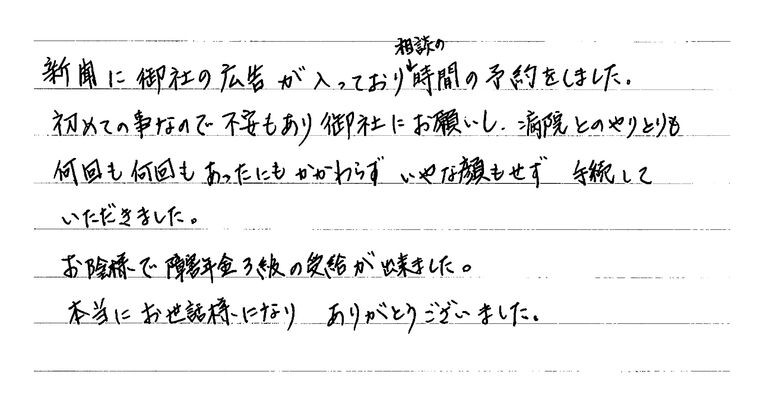 新聞に御社の広告が入っており相談の時間の予約をしました。
初めての事なので不安もあり御社にお願いし、病院とのやりとりも
何回も何回もあったにもかかわらずいやな顔もせず 手続して
いただきました。
お陰様で障害年金3級の受給が出来ました。
本当にお世話様になり ありがとうございました。